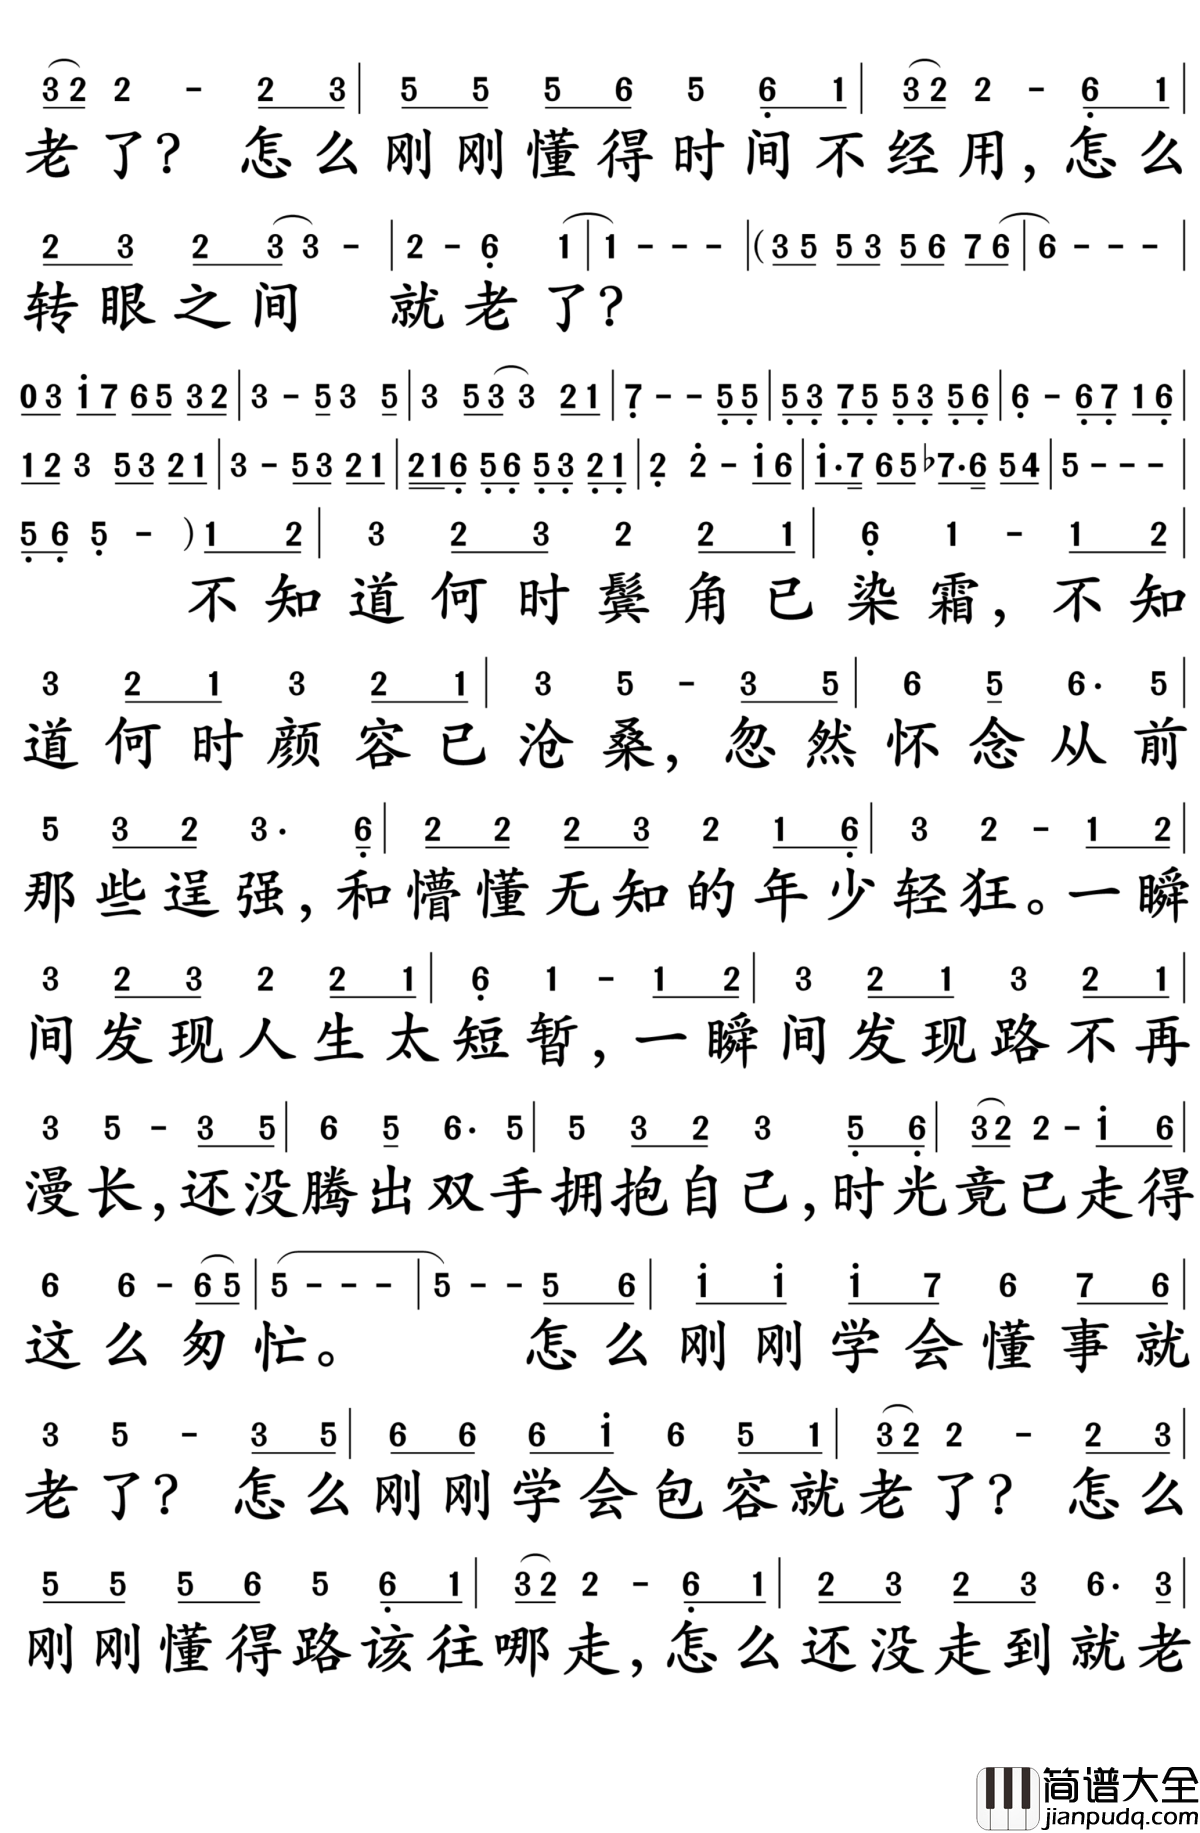 32 2 - 2 3 | 5 5 5 6 5 6 1 | 32 2 - 6 1 |
老了？ 怎么刚刚懂得时间不经用，怎么
2 3 2 3 3 - | 2 - 6 1 | 1 - - - | (35 53 56 76 | 6 - - - |
转眼之间 就老了？
03 i7 65 32 | 3 - 53 5 | 3 53 3 21 | 7 - - 55 | 53 75 53 56 | 6 - 67 16 |
12 3 53 21 | 3 - 53 21 | 216 56 53 21 | 2 2 - i6 | i·7 65 ♭7·6 54 | 5 - - - |
56 5 - ) 1 2 | 3 2 3 2 2 1 | 6 1 - 1 2 |
不知道何时鬓角已染霜，不知
3 2 1 3 2 1 | 3 5 - 3 5 | 6 5 6· 5 |
道何时颜容已沧桑，忽然怀念从前
5 3 2 3· 6 | 2 2 2 3 2 1 6 | 3 2 - 1 2 |
那些逞强，和懵懂无知的年少轻狂。一瞬
3 2 3 2 2 1 | 6 1 - 1 2 | 3 2 1 3 2 1 |
间发现人生太短暂，一瞬间发现路不再
3 5 - 3 5 | 6 5 6· 5 | 5 3 2 3 5 6 | 32 2 - i 6 |
漫长，还没腾出双手拥抱自己，时光竟已走得
6 6 - 65 | 5 - - - | 5 - - 5 6 | i i i 7 6 7 6 |
这么匆忙。 怎么刚刚学会懂事就
3 5 - 3 5 | 6 6 6 i 6 5 1 | 32 2 - 2 3 |
老了？ 怎么刚刚学会包容就老了？ 怎么
5 5 5 6 5 6 1 | 32 2 - 6 1 | 2 3 2 3 6· 3 |
刚刚懂得路该往哪走，怎么还没走到就老
简谱大全
jianpudq.com